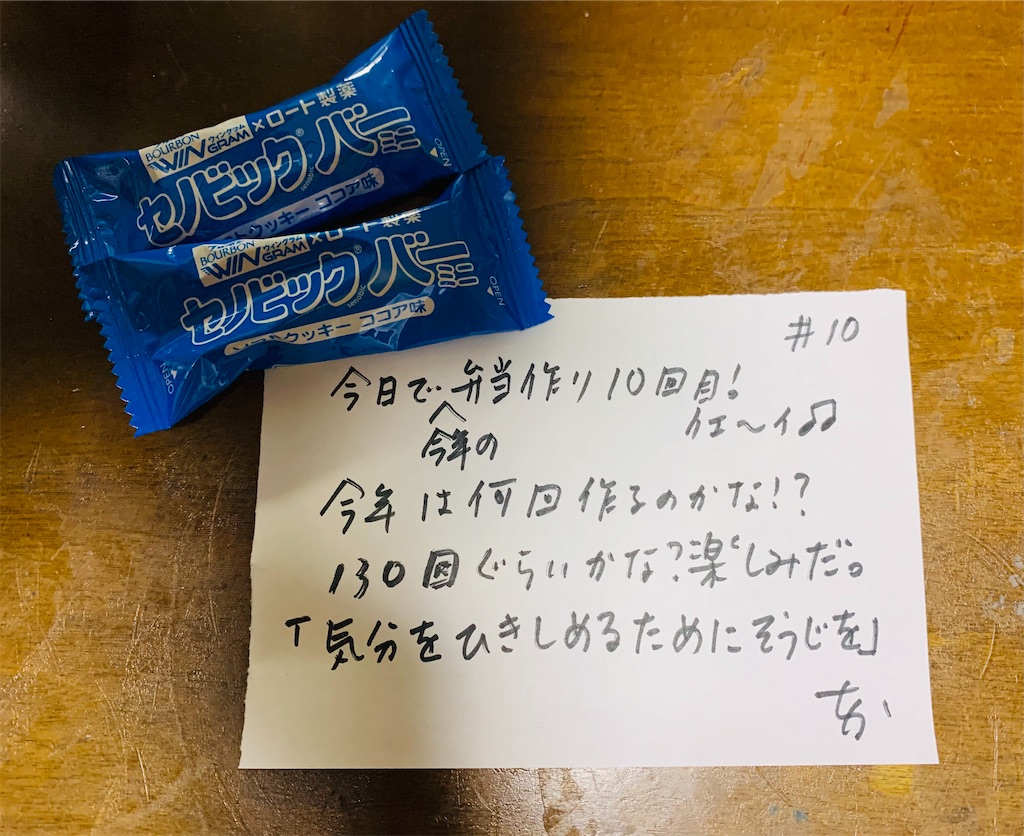 BOURBON
ウィングラム
WINGRAM×ロート製薬
セノビック®バーミニ
senobic
ココア味
OPEN
BOURBON
ウィングラム
WINGRAM×ロート製薬
セノビック®バーミニ
senobic
ソフトクッキー ココア味
OPEN
OPEN
#10
今日で弁当作り10回目!
今年の
イエ〜イ♫
今年は何回作るのかな!?
130回ぐらいかな?楽しみだ。
「気分をひきしめるためにそうじを」